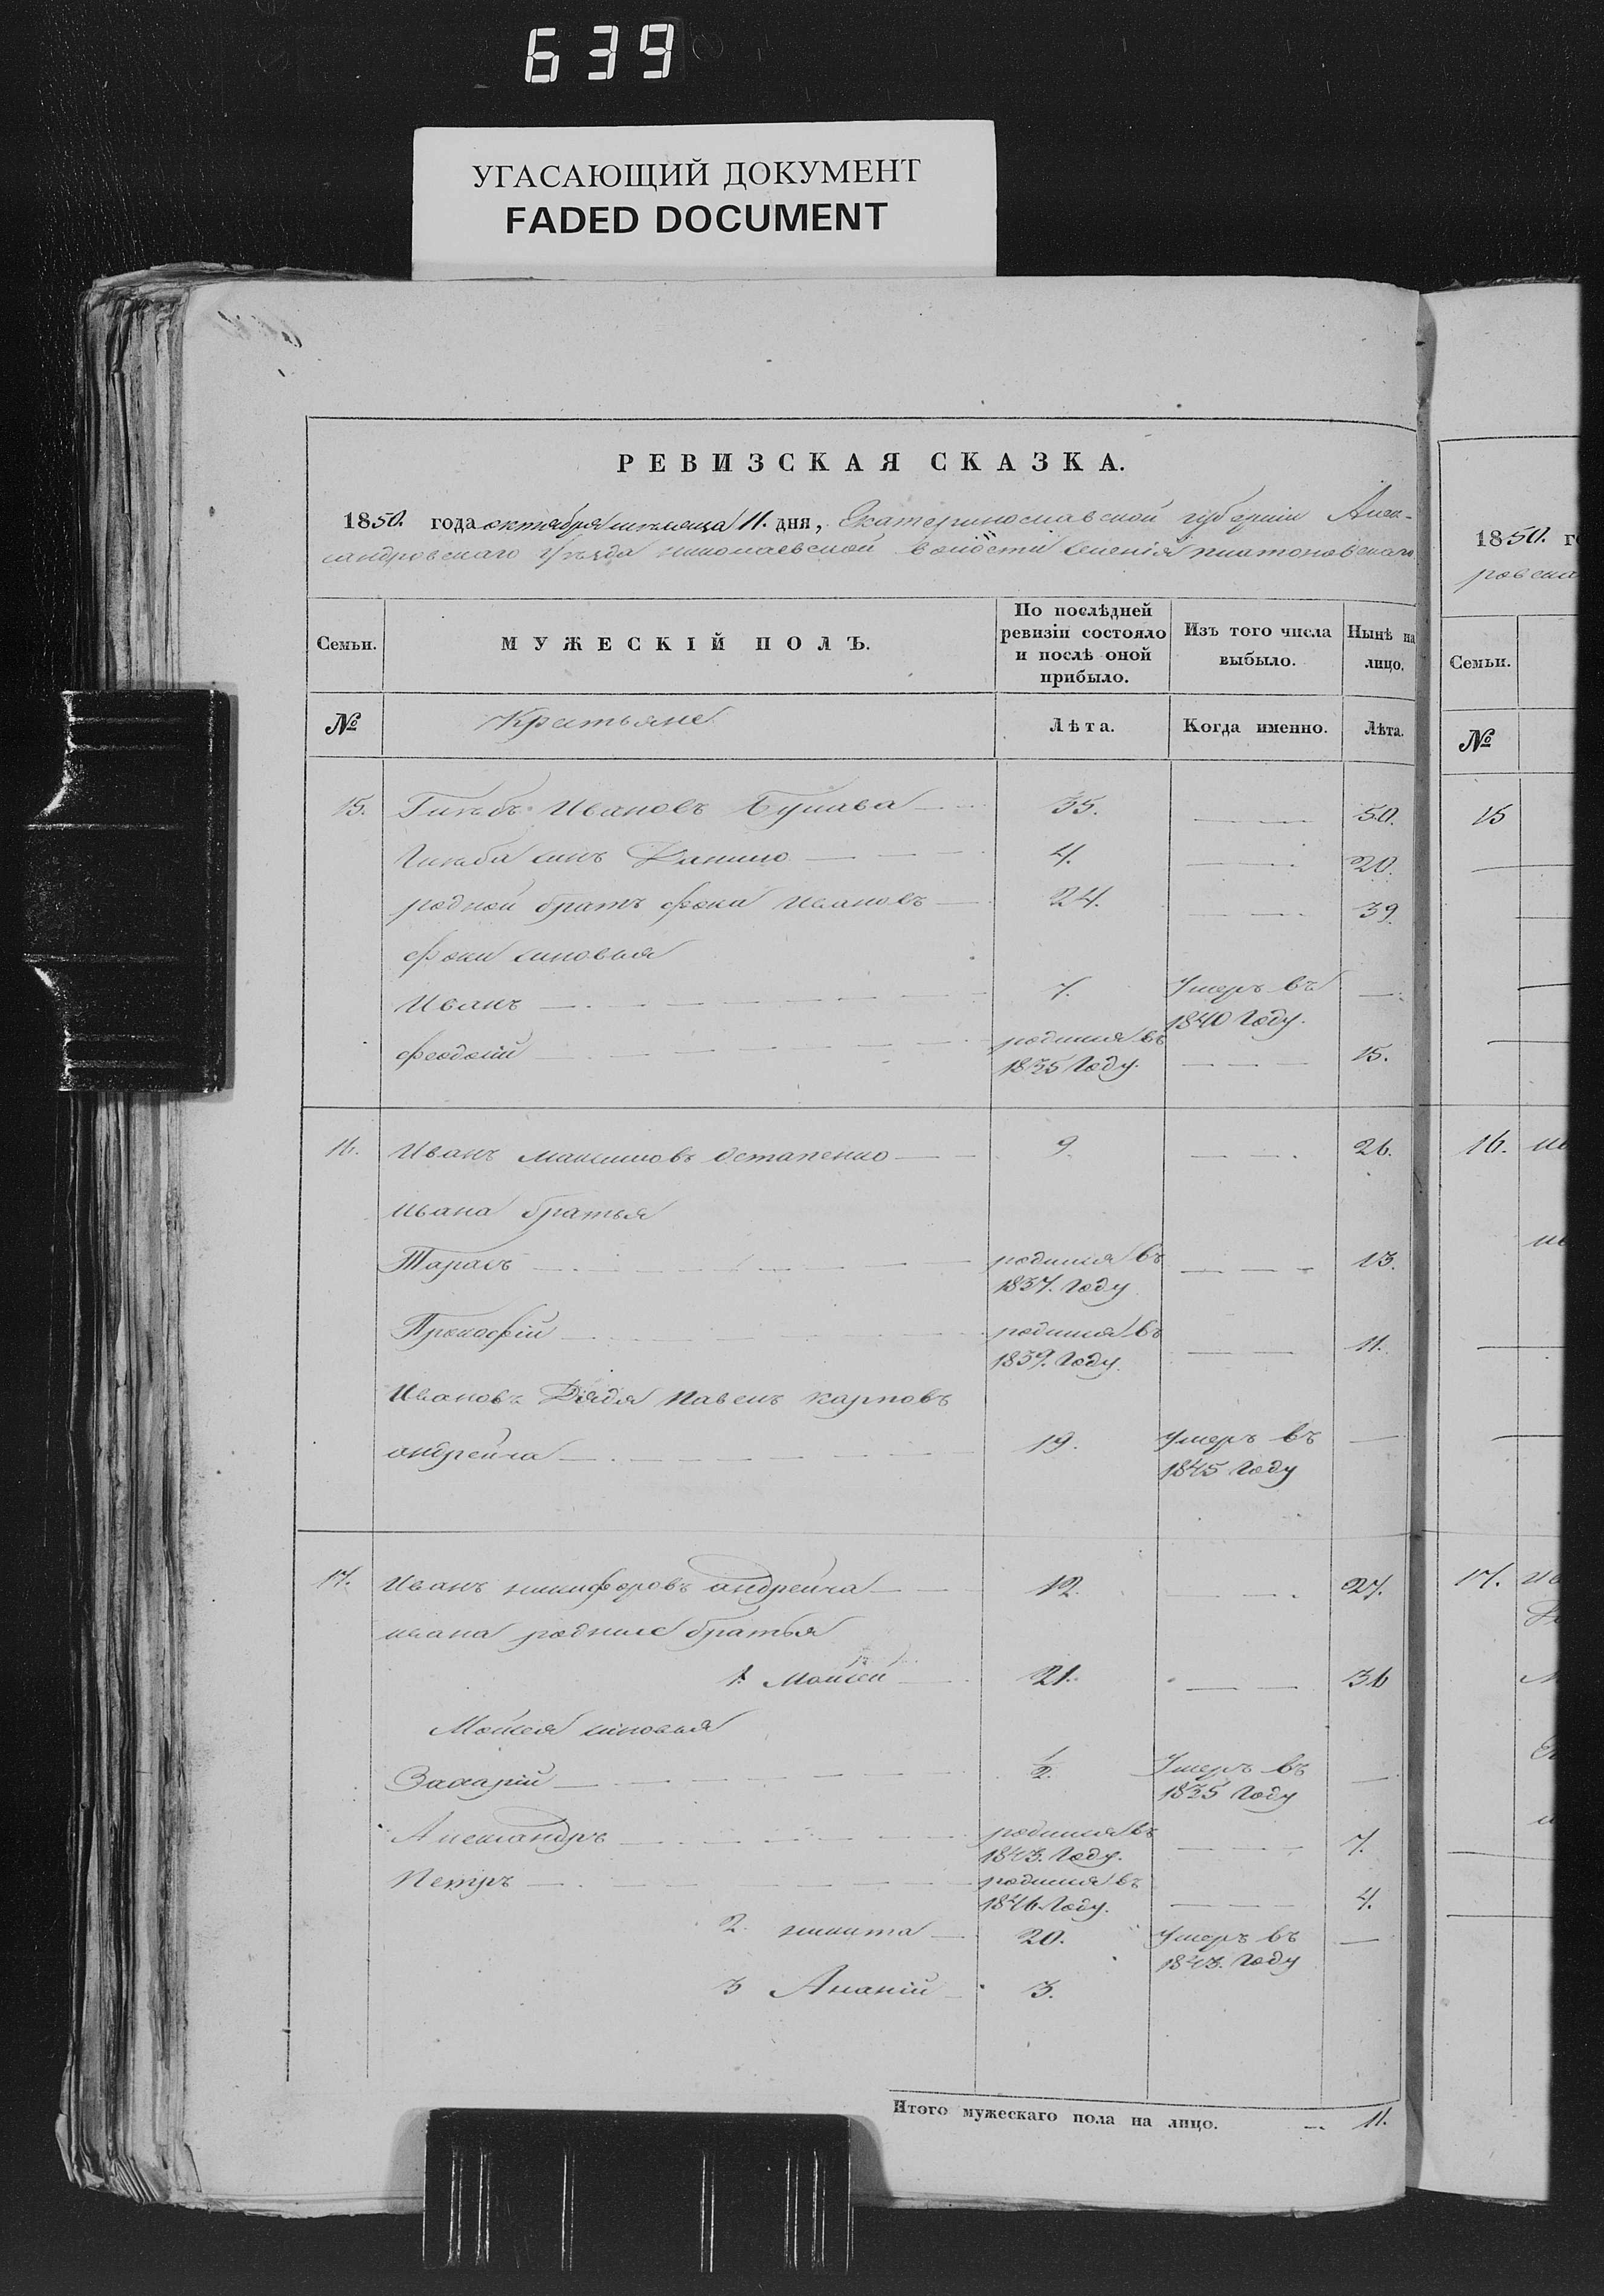 639
УГАСАЮЩИЙ ДОКУМЕНТ
FADED DOCUMENT
РЕВИЗСКАЯ СКАЗКА.
1850. года октября месяца 11. дня, Екатеринославской губернии Алек-
сандровскаго уѣзда николаевской волости селенія платоновскаго
Семьи. МУЖЕСКІЙ ПОЛЪ. По послѣдней ревизіи состояло и послѣ оной прибыло. Изъ того числа выбыло. Нынѣ на лицо.
№ Крестьяне Лѣта. Когда именно. Лѣта.
15. Глѣбъ Ивановъ Булава 35. 50.
Глѣба сынъ Данило 4. 20.
родной братъ фока Ивановъ 24. 39.
фоки сыновья
Иванъ 7. Умеръ въ 1840 Году.
феодосій родился въ 1835 Году. 15.
16. Иванъ Максимовъ Остапенко 9. 26.
ивана братья
Тарасъ родился въ 1837. Году 13.
Прокофій родился въ 1839. Году. 11.
Ивановъ Дядя Павелъ карповъ
андрейча 19. умеръ въ 1845 Году
17. Иванъ никифоровъ андрейча 12. 27.
ивана родные братья
1. Мойсей 21. 36
Мойсея сыновья
Захарій 1/2. Умеръ въ 1835 Году
Александръ родился въ 1843. Году. 7.
Петръ родился въ 1846 Году. 4.
2. никита 20. умеръ въ 1843. Году
3 Ананій 3.
Итого мужескаго пола на лицо. 11.
1850. го
ровска
Семьи.
№
15
16.
17.